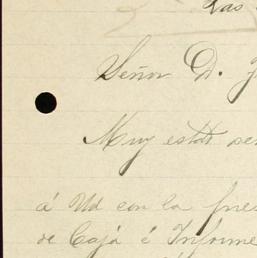 Las
Señor D. J
Muy estdo
á Ud con la
de Caja é Informe